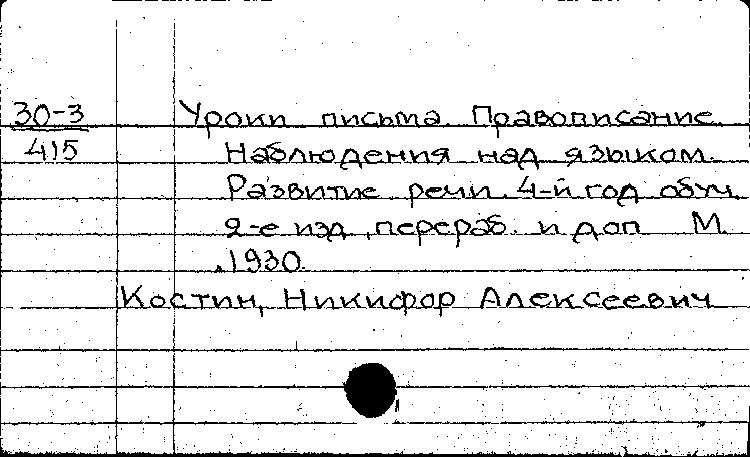 30-3 Уроки письма. Правописание.
415 Наблюдения над языком.
Развитие речи. 4-й год обуч.
2-е изд., перераб. и доп. М.
,1930.
Костин, Никифор Алексеевич